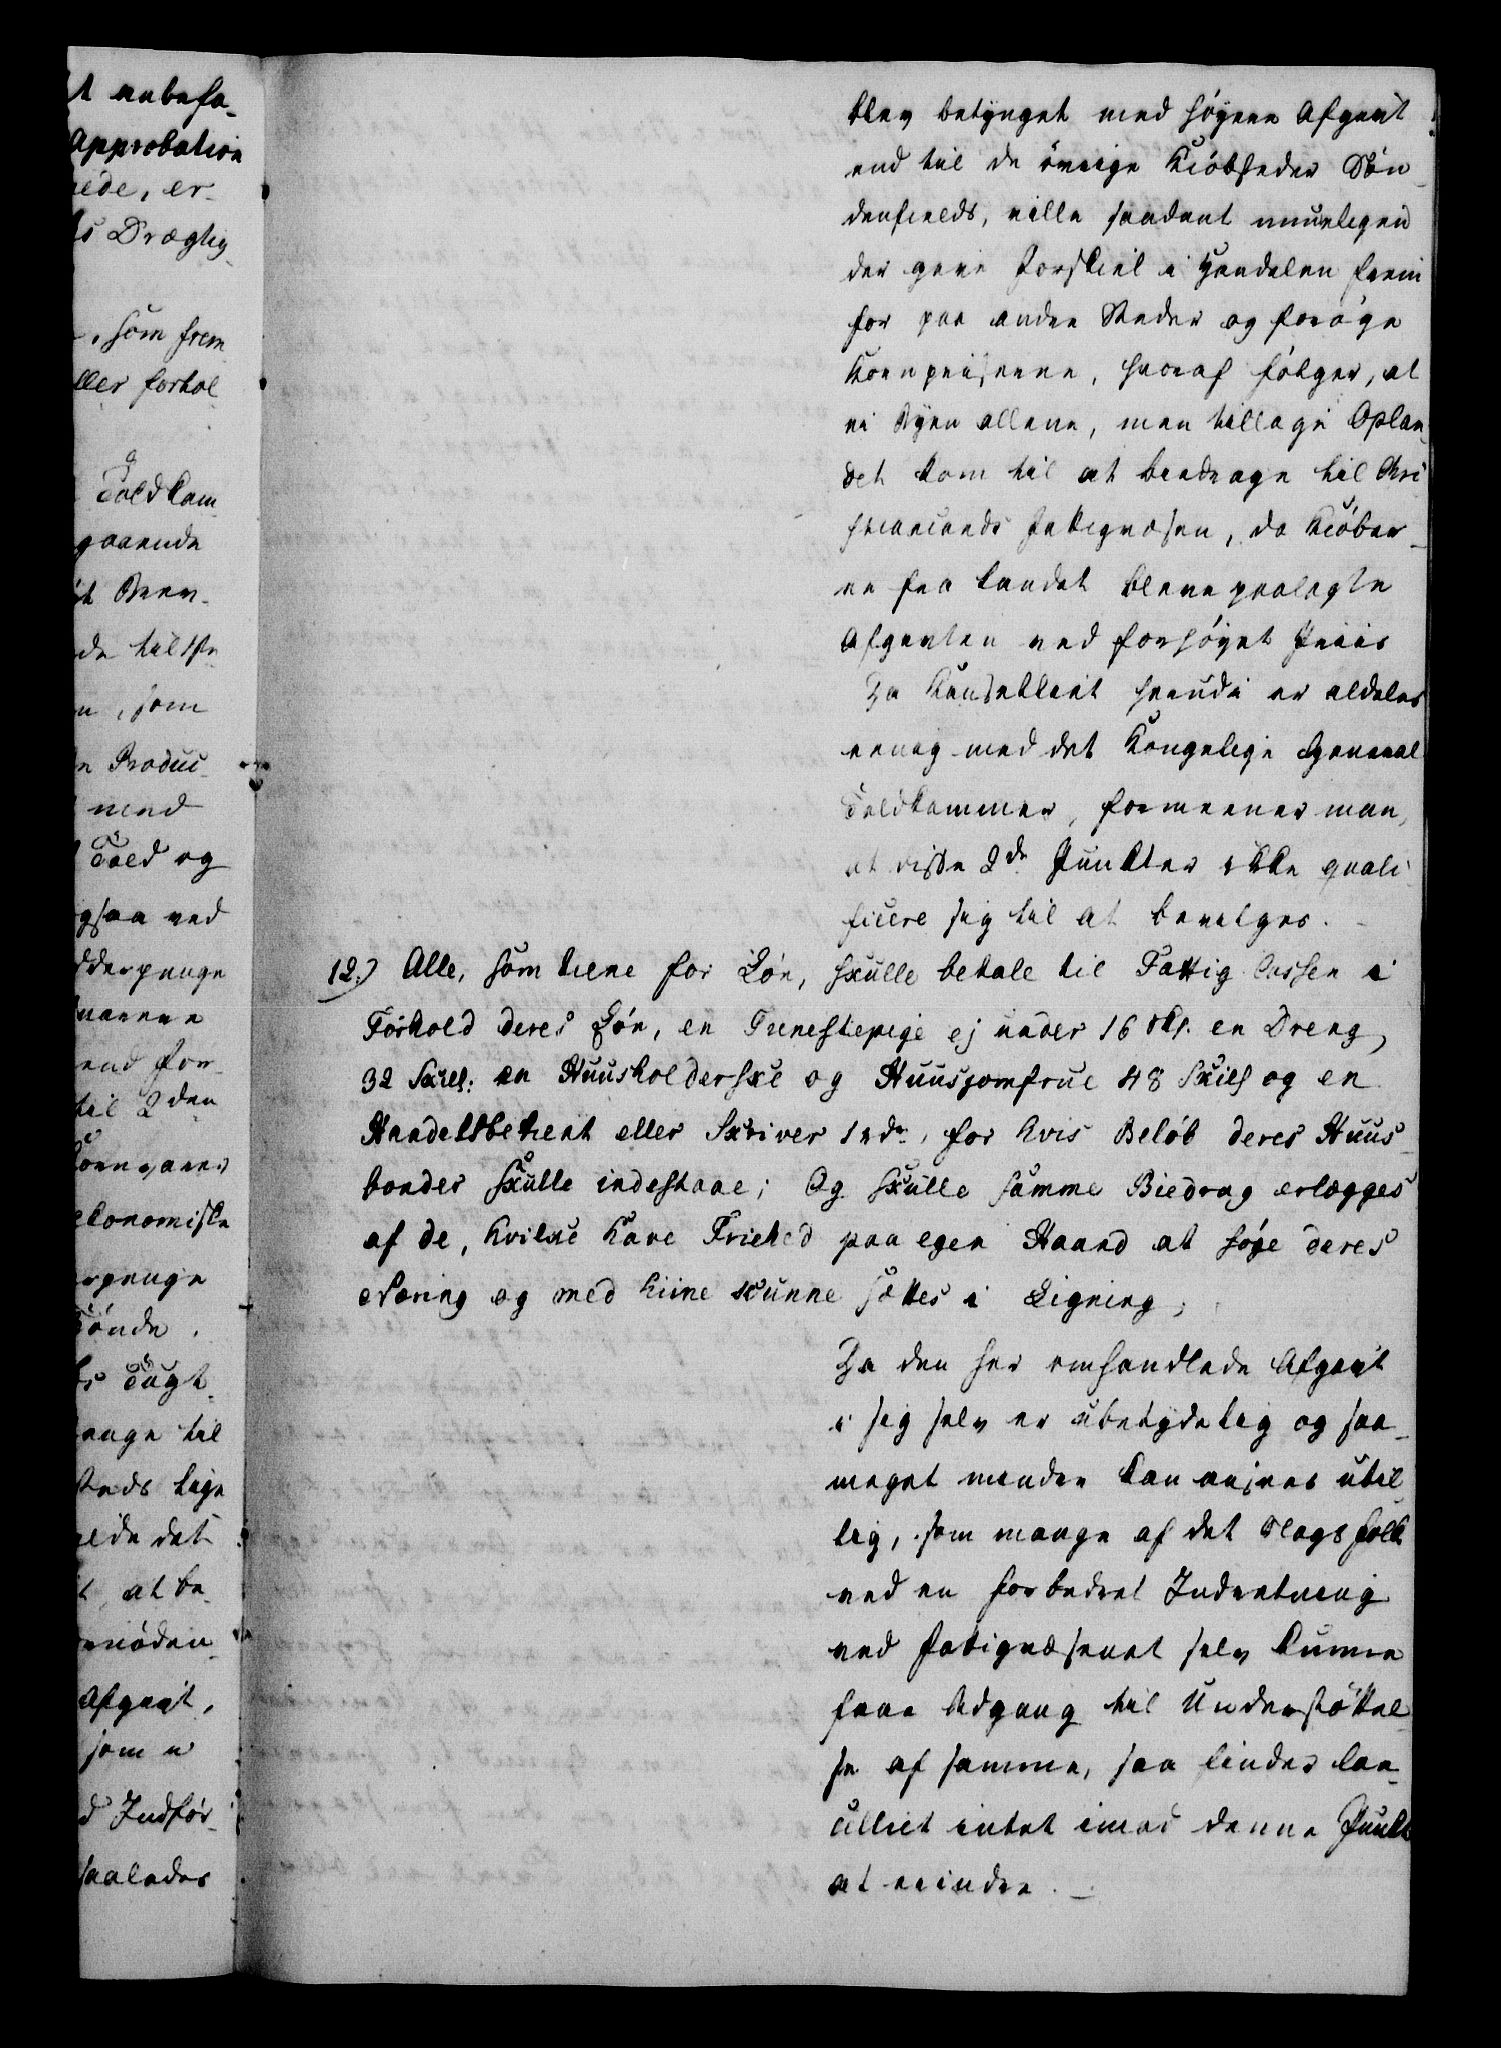 t anbefa-
Approbation
ede, er-
s Drægtig-
, som frem
ller forhol-
Toldkam-
gaaende
de til
n, som
n Produc-
med
Told og
gsaa ved
dderpenge
end for-
til 2den
Kornvarer
økonomiske
erpenge
Tønde.
s Tugt-
enge til
Steds lige
elde det
t at be-
Afgavt,
som u
d Indfør-
saaledes
blev betynget med høyere Afgavt
end til de övrige Kiöbsteder Søn-
denfields, ville saadant muuligen
der give Forskiel i Handelen frem
for paa andre Steder og forøge
Kornpriserne, hvoraf fölger, at
ei Byen allene, men tillige Oplan-
det kom til at bidrage til Chri-
stiansands Fattigvæsen, da Kiöber-
ne fra Landet bleve paalagte
Afgavten ved forhöyet Priis
Da Cancelliet heri er aldeles
eenig med det Kongelige General
Toldkammer, formeener man,
at disse 2de Punkter ikke quali-
ficere sig til at bevilges.
12.) Alle, som tiene for Løn, skulle betale til Fattig Cassen i
Forhold deres Løn, en Tienestepige ej under 16 sk. en Dreng,
32 Skill: en Huusholderske og Huusjomfrue 48 Skill og en
Handelsbetient eller Skriver 1 rdr, for hvis Beløb deres Huus-
bonder skulle indestaae; Og skulle samme Biedrag erlægges
af de, hvilke have Friehed paa egen Haand at søge deres
Næring og med hine kunne sættes i Ligning;
Da den her omhandlede Afgavt
i sig selv er ubetydelig og saa-
meget mindre kan ansees ubil-
lig, som mange af det Slags Folk
ved en forbedret Indretning
ved Fattigvæsenet selv kunne
faae Adgang til Understöttel-
se af samme, saa finder Can-
celliet intet imod denne Punkt
at erindre.